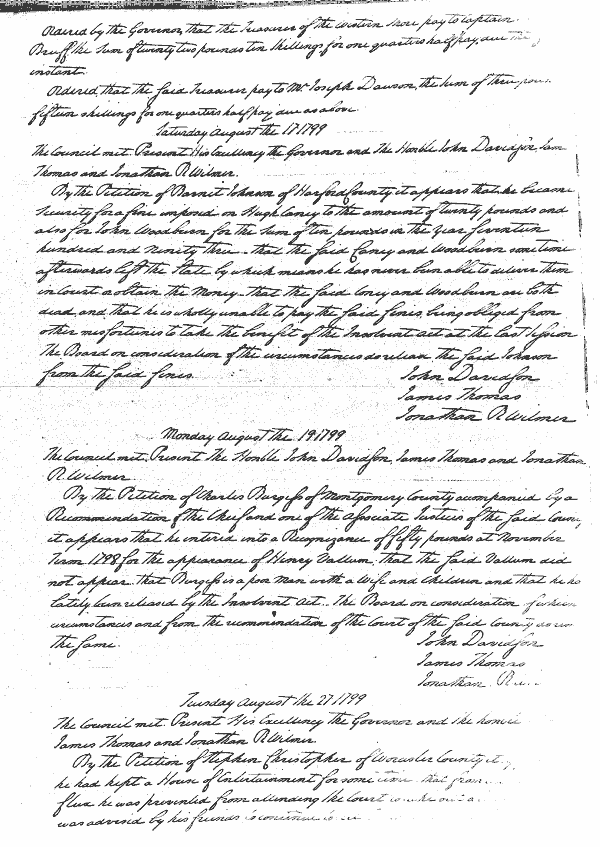 Ordered by the Governor, that the Treasurer of the Western Shore pay to Captain
Bruff the Sum of twenty two pounds ten shillings, for one quarters half pay, due the
instant.
Ordered, that the said Treasurer pay to Mr Joseph Dawson, the Sum of three
fifteen shillings for one quarters half pay due as above
Saturday August the 17 1799
The Council met. Present His Excellency the Governor and The Honble John Davidson, Jam
Thomas and Jonathan R Wilmer.
By the Petition of Barnet Johnson of Harford County it appears that he became
Security for a fine imposed on Hugh Caney to the amount of twenty pounds and
also for John Woodburn for the Sum of ten pounds in the year seventeen
hundred and Ninety three. that the said Caney and Woodburn some time
afterwards left the State by which means he has never been able to deliver them
in Court or obtain the Money. that the said Coney and Woodburn are both
dead, and that he is wholly unable to pay the said fines, being obliged from
other misfortunes to take the benefit of the Insolvent act at the Last Session
The Board on consideration of the circumstances do release the said Johnson
from the said fines.
John Davidson
James Thomas
Jonathan R Wilmer
Monday August the 19 1799
The Council met. Present The Honble John Davidson, James Thomas and Jonathan
R. Wilmer
By the Petition of Charles Burgess of Montgomery County accompanied by a
Recommendation of the Chief and one of the Associate Justices of the said County
it appears that he entered into a Recognizance of fifty pounds at November
Term 1798 for the appearance of Henry Vallum. that the said Vallum did
not appear. that Burgess is a poor Man with a Wife and Children and that he h
lately been released by the Insolvent Act. The Board on consideration of
circumstances and from the recommendation of the Court of the said County
the same.
John Davidson
James Thomas
Jonathan R
Tuesday August the 27 1799
The Council met Present His Excellency the Governor and the honble
James Thomas and Jonathan R Wilmer
By the Petition of Stephen Christopher of Worcester County it
he had kept a House of Entertainment for some time that from
flux he was prevented from attending the Court
was advised by his friends to continue